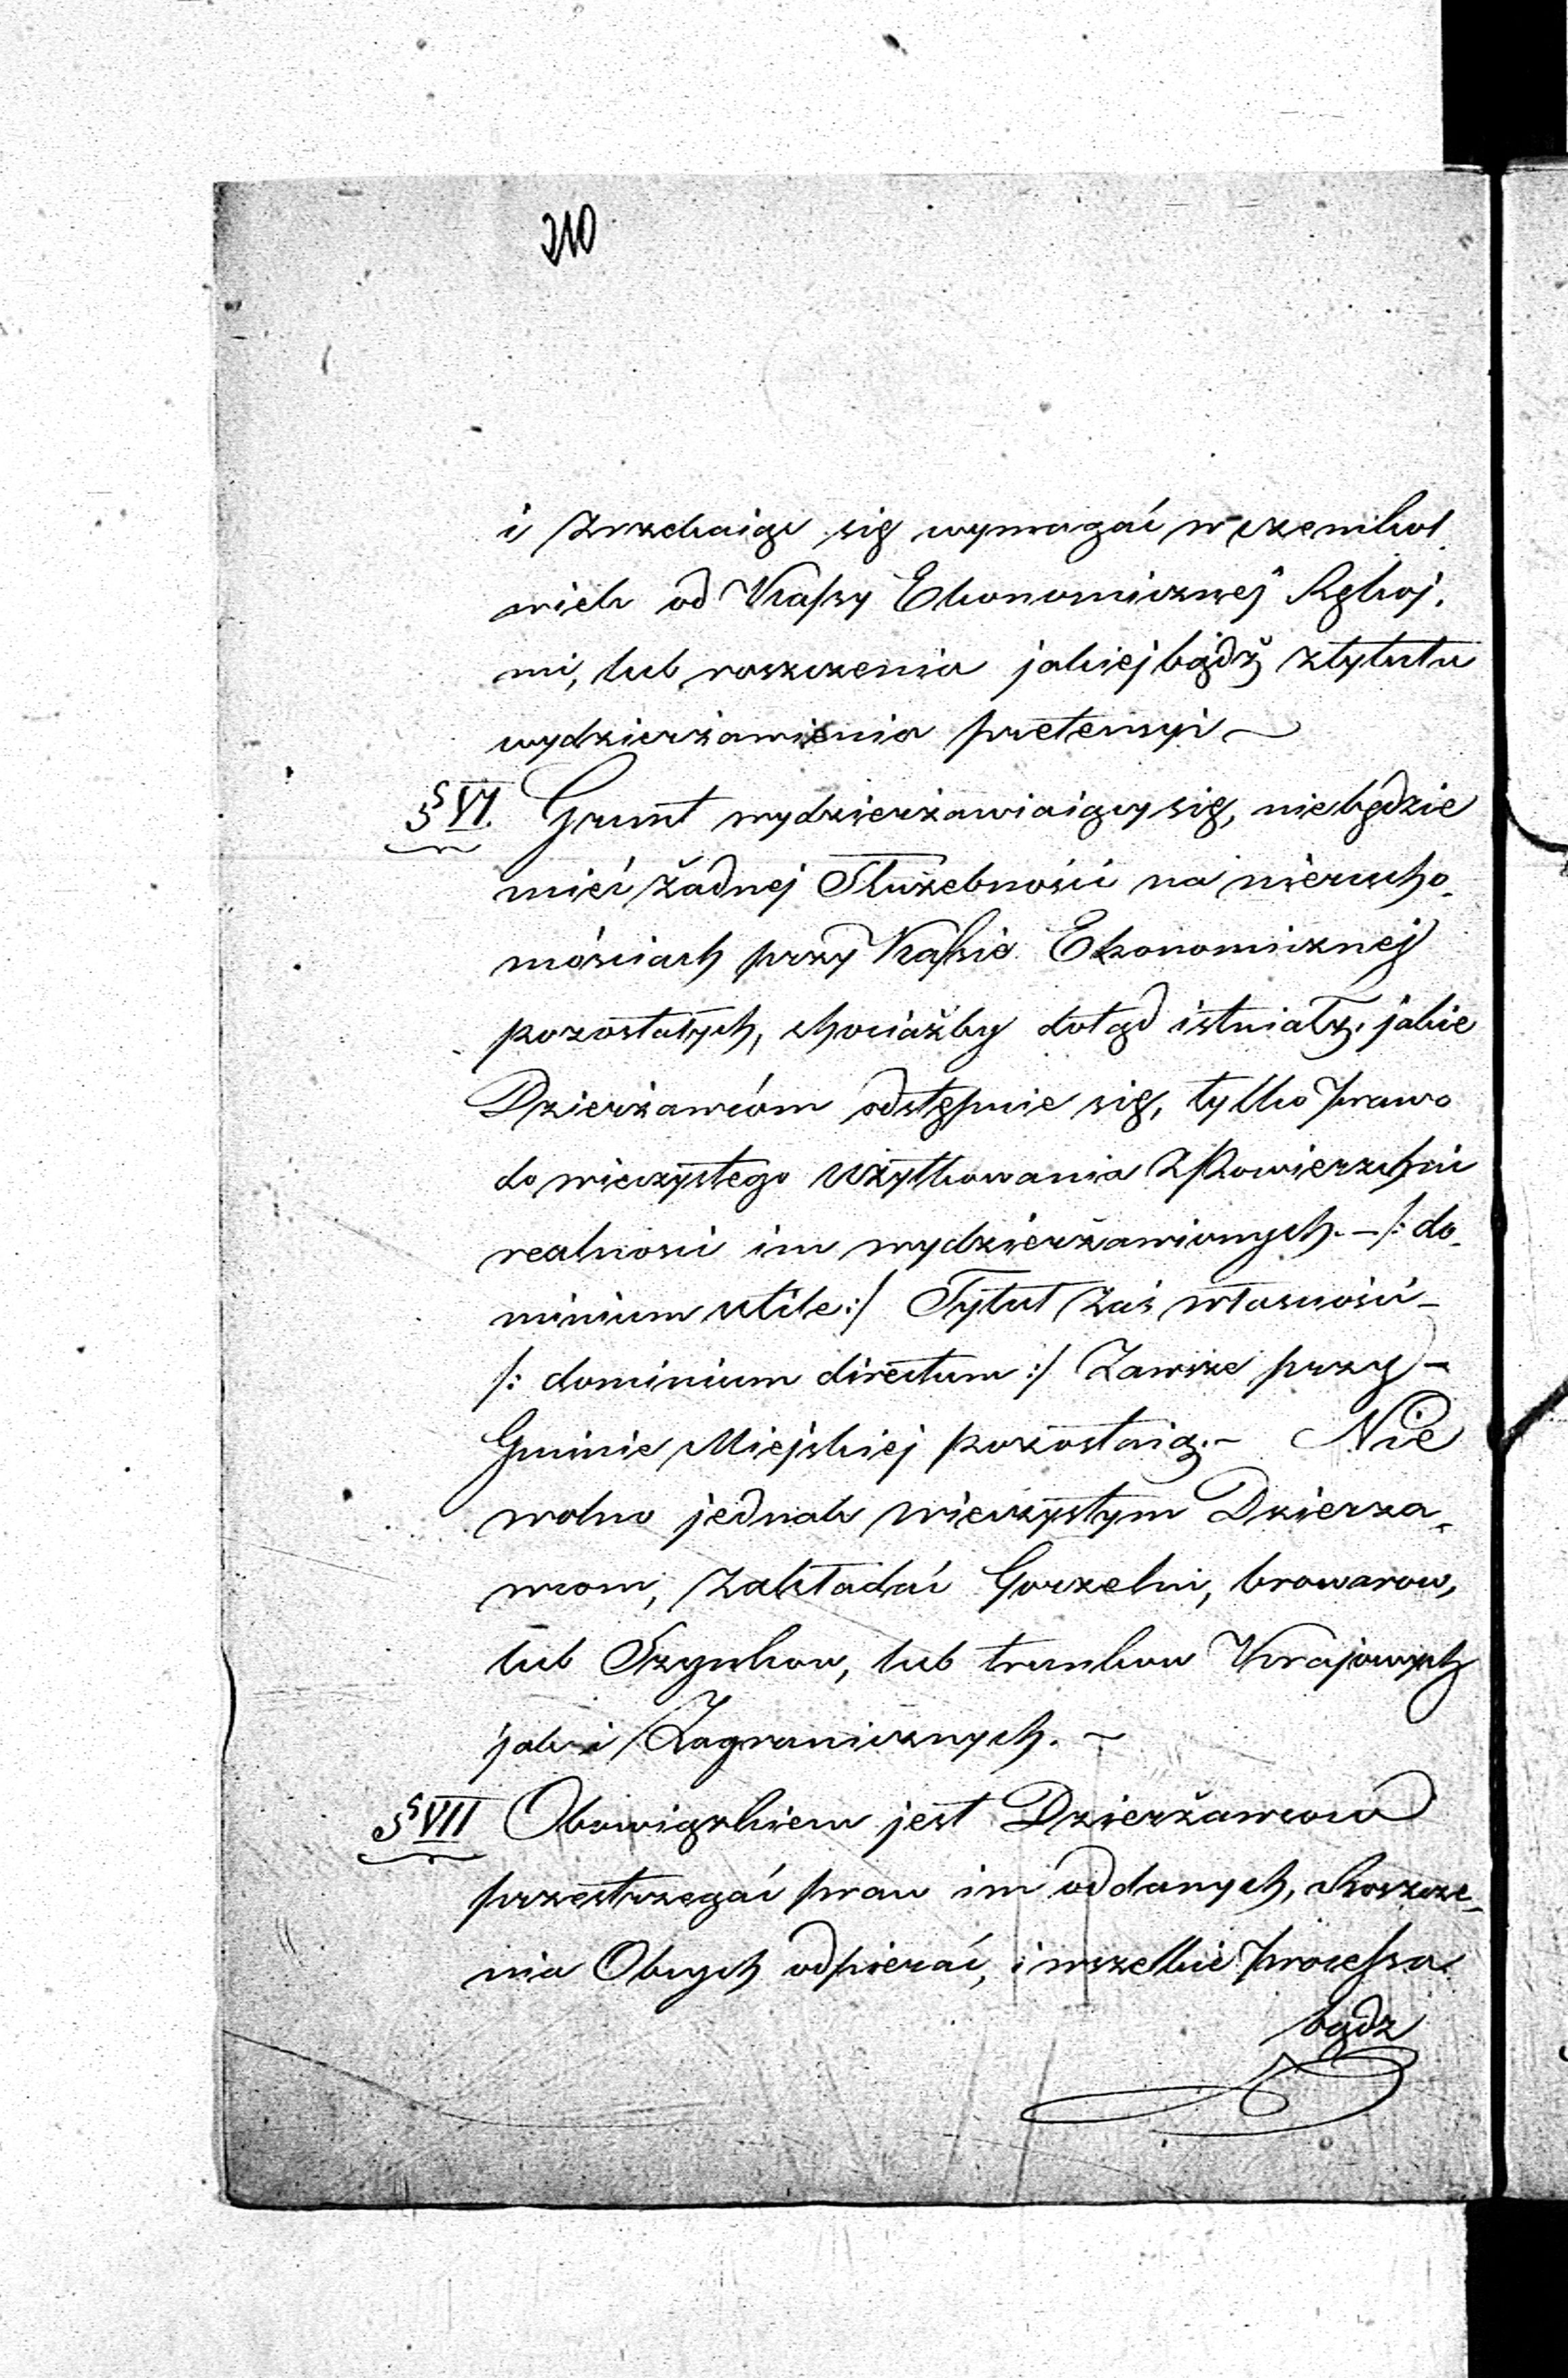 210
i zrzekaiąc się wymagać w czemkol
wiek od Kassy Ekonomicznej Rękoj.
mi, lub roszczenia jakiejbądź ztytułu
wydzierżawienia pretensyi ~
§ VI. Grunt wydzierżawiaiący się, niebędzie
mieć żadnej Służebności na nierucho-
mościach przy Kassie Ekonomicznej
pozostałych, chociażby dotąd istniały, jakie
Dzierżawcóm odstępuie się, tylko prawo
do wieczystego użytkowania z Powierzchni
realnosci im wydzierżawionych. – /: do-
minium utile :/ Tytuł zaś własności –
/: dominium directum :/ Zawsze przy –
Gminie Miejskiej pozostaią. – Nie
wolno jednak wieczystym Dzierza-
wcom, zakładać Gorzelni, browarow,
lub Szynkow, lub trunkow Krajowych
jak i Zagranicznych. ~
§ VII Obowiązkiem jest Dzierżawcow
przestrzegać praw im oddanych, Roszcze-
nia Obcych odpierać, i wszelkie processa
bądz